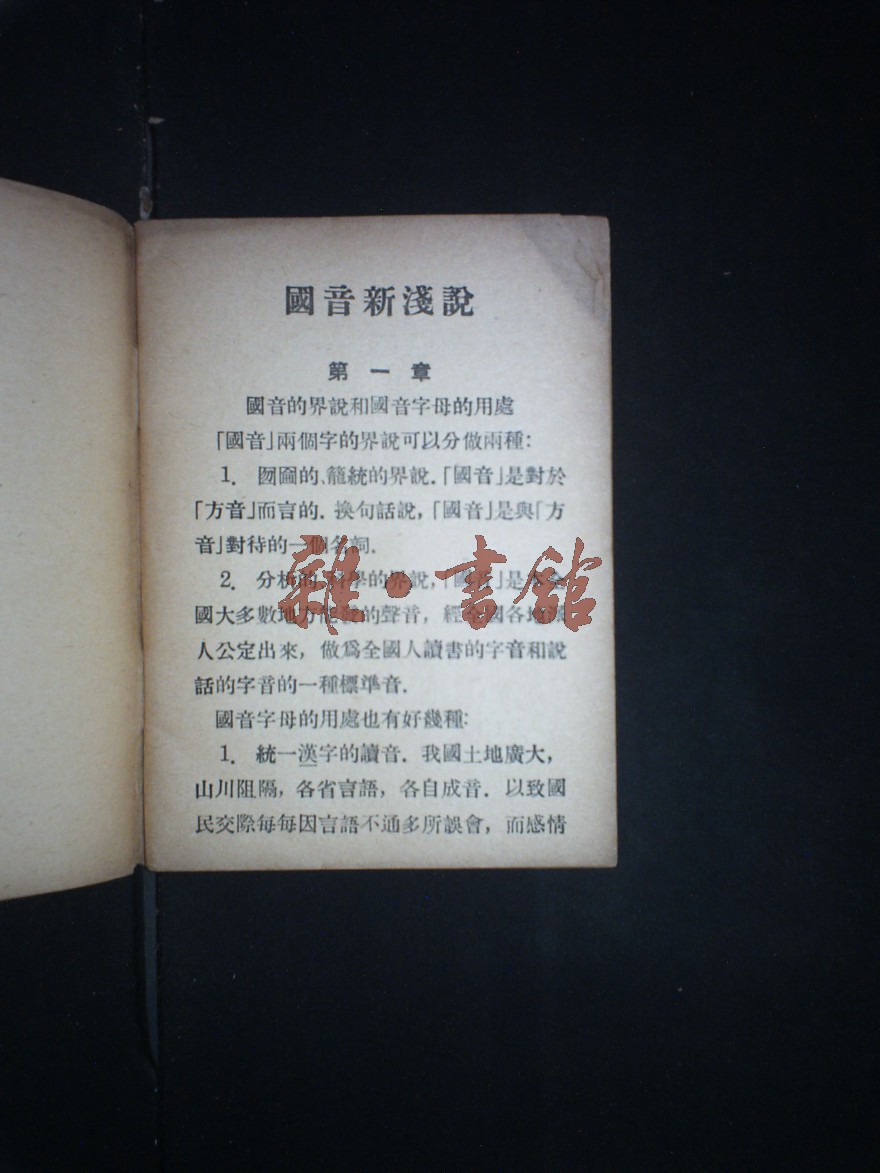 國音新淺說
第一章
國音的界說和國音字母的用處
「國音」兩個字的界說可以分做兩種：
1. 囫圇的、籠統的界說.「國音」是對於
「方音」而言的. 換句話說，「國音」是與「方
音」對待的一個名詞.
2. 分析的、科學的界說，「國音」是本全
國大多數地方能發的聲音，經全國各地漢
人公定出來，做爲全國人讀書的字音和說
話的字音的一種標準音.
國音字母的用處也有好幾種：
1. 統一漢字的讀音. 我國土地廣大，
山川阻隔，各省言語，各自成音. 以致國
民交際每每因言語不通多所誤會，而感情
雜·書館